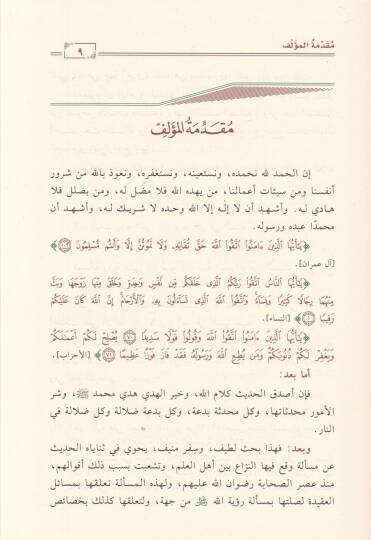 مُقَدِّمَةُ المؤَلِّف
٩
مُقَدِّمَةُ المُؤَلِّفِ
إن الحمد لله نحمده، ونستعينه، ونستغفره، ونعوذ بالله من شرور
أنفسنا ومن سيئات أعمالنا، من يهده الله فلا مضل له، ومن يضلل فلا
هادي له. وأشهد أن لا إله إلا الله وحده لا شريك له، وأشهد أن
محمدًا عبده ورسوله.
﴿يَٰٓأَيُّهَا ٱلَّذِينَ ءَامَنُوا۟ ٱتَّقُوا۟ ٱللَّهَ حَقَّ تُقَاتِهِۦ وَلَا تَمُوتُنَّ إِلَّا وَأَنتُم مُّسْلِمُونَ ﴿١٠٢﴾﴾
[آل عمران].
﴿يَٰٓأَيُّهَا ٱلنَّاسُ ٱتَّقُوا۟ رَبَّكُمُ ٱلَّذِى خَلَقَكُم مِّن نَّفْسٍ وَٰحِدَةٍ وَخَلَقَ مِنْهَا زَوْجَهَا وَبَثَّ
مِنْهُمَا رِجَالًا كَثِيرًا وَنِسَآءً وَٱتَّقُوا۟ ٱللَّهَ ٱلَّذِى تَسَآءَلُونَ بِهِۦ وَٱلْأَرْحَامَ إِنَّ ٱللَّهَ كَانَ عَلَيْكُمْ
رَقِيبًا ﴿١﴾﴾ [النساء].
﴿يَٰٓأَيُّهَا ٱلَّذِينَ ءَامَنُوا۟ ٱتَّقُوا۟ ٱللَّهَ وَقُولُوا۟ قَوْلًا سَدِيدًا ﴿٧٠﴾ يُصْلِحْ لَكُمْ أَعْمَٰلَكُمْ
وَيَغْفِرْ لَكُمْ ذُنُوبَكُمْ وَمَن يُطِعِ ٱللَّهَ وَرَسُولَهُۥ فَقَدْ فَازَ فَوْزًا عَظِيمًا ﴿٧١﴾﴾ [الأحزاب].
أما بعد:
فإن أصدق الحديث كلام الله، وخير الهدي هدي محمد ﷺ، وشر
الأمور محدثاتها، وكل محدثة بدعة، وكل بدعة ضلالة وكل ضلالة في
النار.
وبعد: فهذا بحث لطيف، وسِفر منيف، يحوي في ثناياه الحديث
عن مسألة وقع فيها النزاع بين أهل العلم، وتشعبت بسبب ذلك أقوالهم،
منذ عصر الصحابة رضوان الله عليهم، ولهذه المسألة تعلقها بمسائل
العقيدة لصلتها بمسألة رؤية الله ﷻ من جهة، ولتعلقها كذلك بخصائص